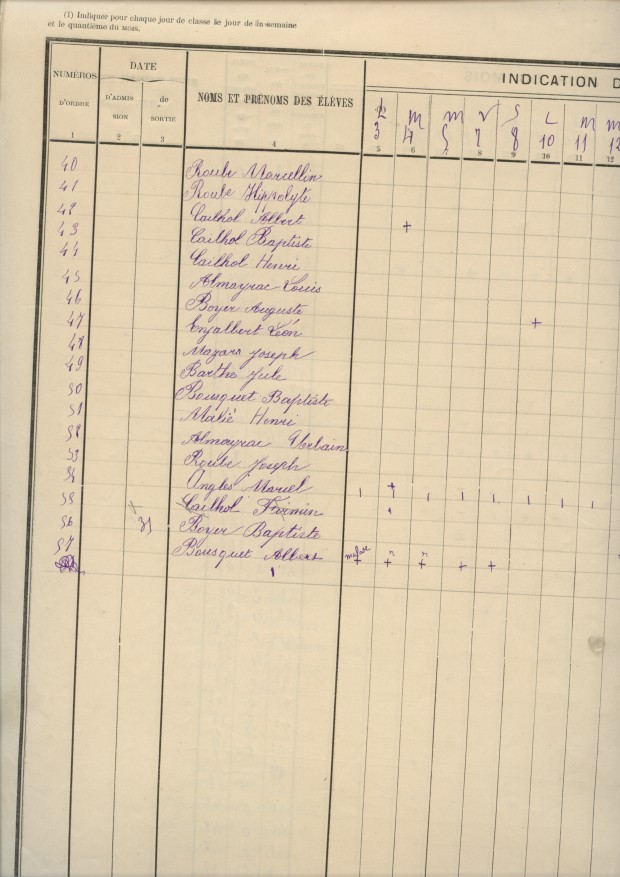 (1) Indiquer pour chaque jour de classe le jour de la semaine
et le quantième du MOIS.
NUMÉROS D'ORDRE
DATE
D'ADMISSION
de SORTIE
NOMS ET PRÉNOMS DES ÉLÈVES
INDICATION D
L m m V S L m m
3 4 5 7 8 10 11 12
1 2 3 4 5 6 7 8 9 10 11 12
40 Roube Marcellin
41 Roube Hippolyte
42 Cailhol Albert +
43 Cailhol Baptiste
44 Cailhol Henri
45 Almayrac Louis
46 Boyer Auguste
47 Enjalbert Léon +
48 Mazars Joseph
49 Barthe Jule
50 Bousquet Baptiste
51 Malié Henri
52 Almayrac Urbain
53 Roube Joseph
54 Anglés Marcel +
55 Cailhol Firmin
56 Boyer Baptiste
57 Bousquet Albert + + + + +